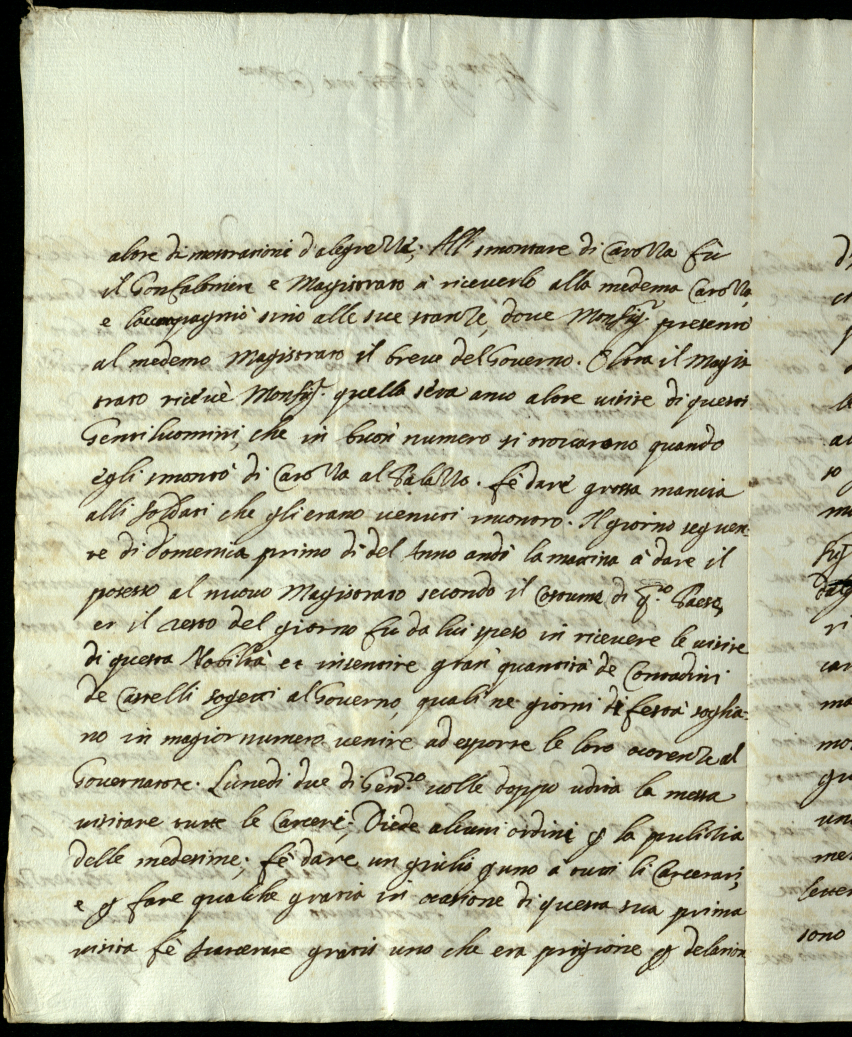 altre dimostrazioni d'alegrezza; Allo smontare di Carozza fù
il Gonfaloniere e Magistrato à riceverlo alla medema Carozza
e l'accompagniò sino alle sue stanze, dove Monsig.r presentò
al medemo Magistrato il breve del Governo. Oltra il Magis
trato ricevè Monsig.r quella sera anco altre visite di questi
Gentilhuomini, che in buon numero si trovarono quando
egli smontò di Carozza al Palazzo. fè dare grossa mancia
alli soldati che gli erano venuti incontro. Il giorno seguen-
te di Domenica primo dì del Anno andò la mattina à dare il
posesso al nuovo Magistrato secondo il Costume di q.sto Paese,
et il resto del giorno fu da lui speso in ricevere le visite
di questa Nobiltà et in sentire gran quantità de Contadini
de Castelli sogetti al Governo, quali ne giorni di festa soglia-
no in magior numero venire ad esporre le loro ocorenze al
Governatore. Lunedi due di Gen.ro volle doppo udita la messa
visitare tutte le Carceri; Diede alcuni ordini p la pulitia
delle medesime; fè dare un giulio p uno à tutti li Carcerati,
e p fare qualche gratia in ocasione di questa sua prima
visita fè scarcerare gratis uno che era prigione p delatione